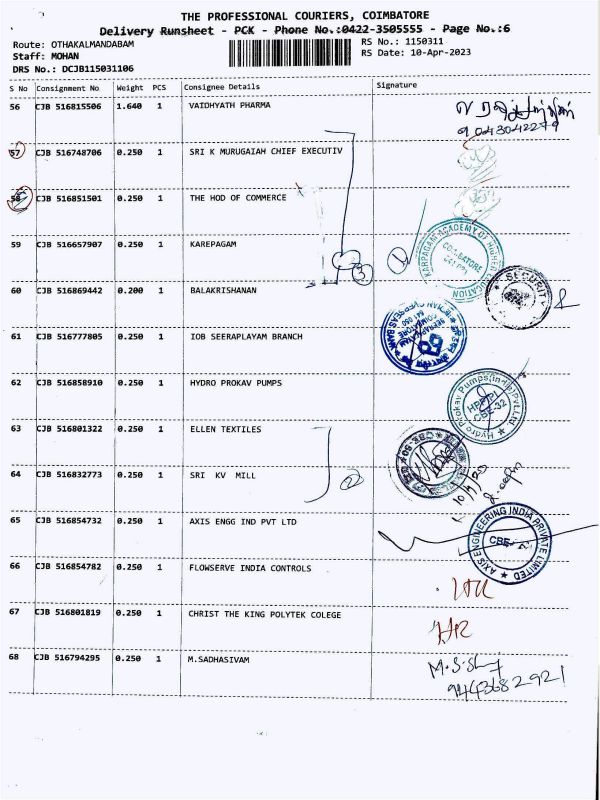 THE PROFESSIONAL COURIERS, COIMBATORE
Delivery Runsheet - PCK - Phone No.:0422-3505555 - Page No.:6
Route: OTHAKALMANDABAM
RS No.: 1150311
Staff: MOHAN
RS Date: 10-Apr-2023
DRS No.: DCJB115031106
S No Consignment No Weight PCS Consignee Details Signature
56 CJB 516815506 1.640 1 VAIDHYATH PHARMA
9043042279
57 CJB 516748706 0.250 1 SRI K MURUGAIAH CHIEF EXECUTIV
58 CJB 516851501 0.250 1 THE HOD OF COMMERCE
59 CJB 516657907 0.250 1 KAREPAGAM
3
KARPAGAM ACADEMY OF HIGHER EDUCATION
COIMBATORE
60 CJB 516869442 0.200 1 BALAKRISHANAN
SECURITY
61 CJB 516777805 0.250 1 IOB SEERAPLAYAM BRANCH
62 CJB 516858910 0.250 1 HYDRO PROKAV PUMPS
Hydro Prokav Pumps(India)Pvt.Ltd
CBE-32
63 CJB 516801322 0.250 1 ELLEN TEXTILES
64 CJB 516832773 0.250 1 SRI KV MILL
2
65 CJB 516854732 0.250 1 AXIS ENGG IND PVT LTD
AXIS ENGINEERING INDIA PRIVATE LIMITED
66 CJB 516854782 0.250 1 FLOWSERVE INDIA CONTROLS
67 CJB 516801819 0.250 1 CHRIST THE KING POLYTEK COLEGE
68 CJB 516794295 0.250 1 M.SADHASIVAM
9443682921